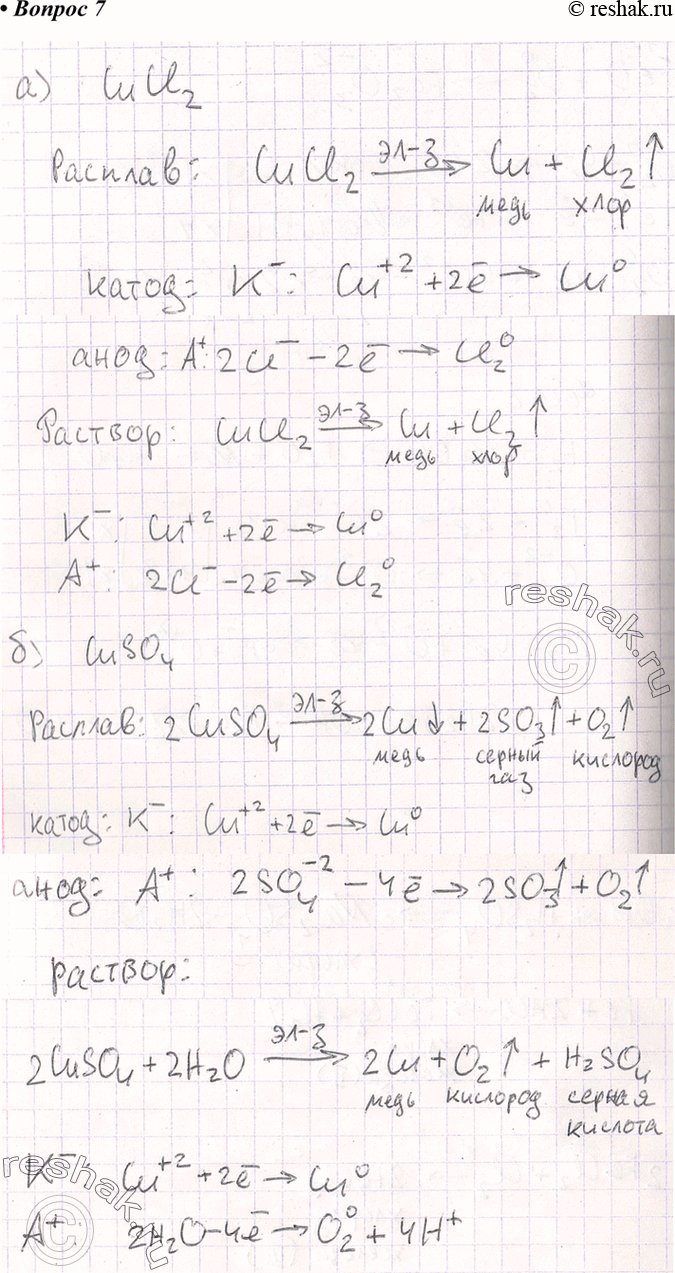 • Вопрос 7
© reshak.ru
а) CuCl₂
Расплав: CuCl₂ эл-з → Cu + Cl₂↑
медь хлор
катод: K⁻: Cu⁺² + 2ē → Cu⁰
анод: A⁺: 2Cl⁻ − 2ē → Cl₂⁰
Раствор: CuCl₂ эл-з → Cu + Cl₂↑
медь хлор
K⁻: Cu⁺² + 2ē → Cu⁰
A⁺: 2Cl⁻ − 2ē → Cl₂⁰
reshak.ru
©
б) CuSO₄
Расплав: 2CuSO₄ эл-з → 2Cu↓ + 2SO₃↑ + O₂↑
медь серный газ кислород
катод: K⁻: Cu⁺² + 2ē → Cu⁰
анод: A⁺: 2SO₄⁻² − 4ē → 2SO₃↑ + O₂↑
раствор:
2CuSO₄ + 2H₂O эл-з → 2Cu + O₂↑ + H₂SO₄
медь кислород серная кислота
K⁻: Cu⁺² + 2ē → Cu⁰
A⁺ 2H₂O − 4ē → O₂⁰ + 4H⁺
reshak.ru
©